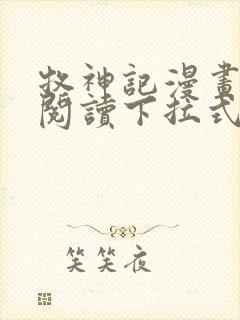 牧神記漫畫
閱讀下拉式
笑笑夜